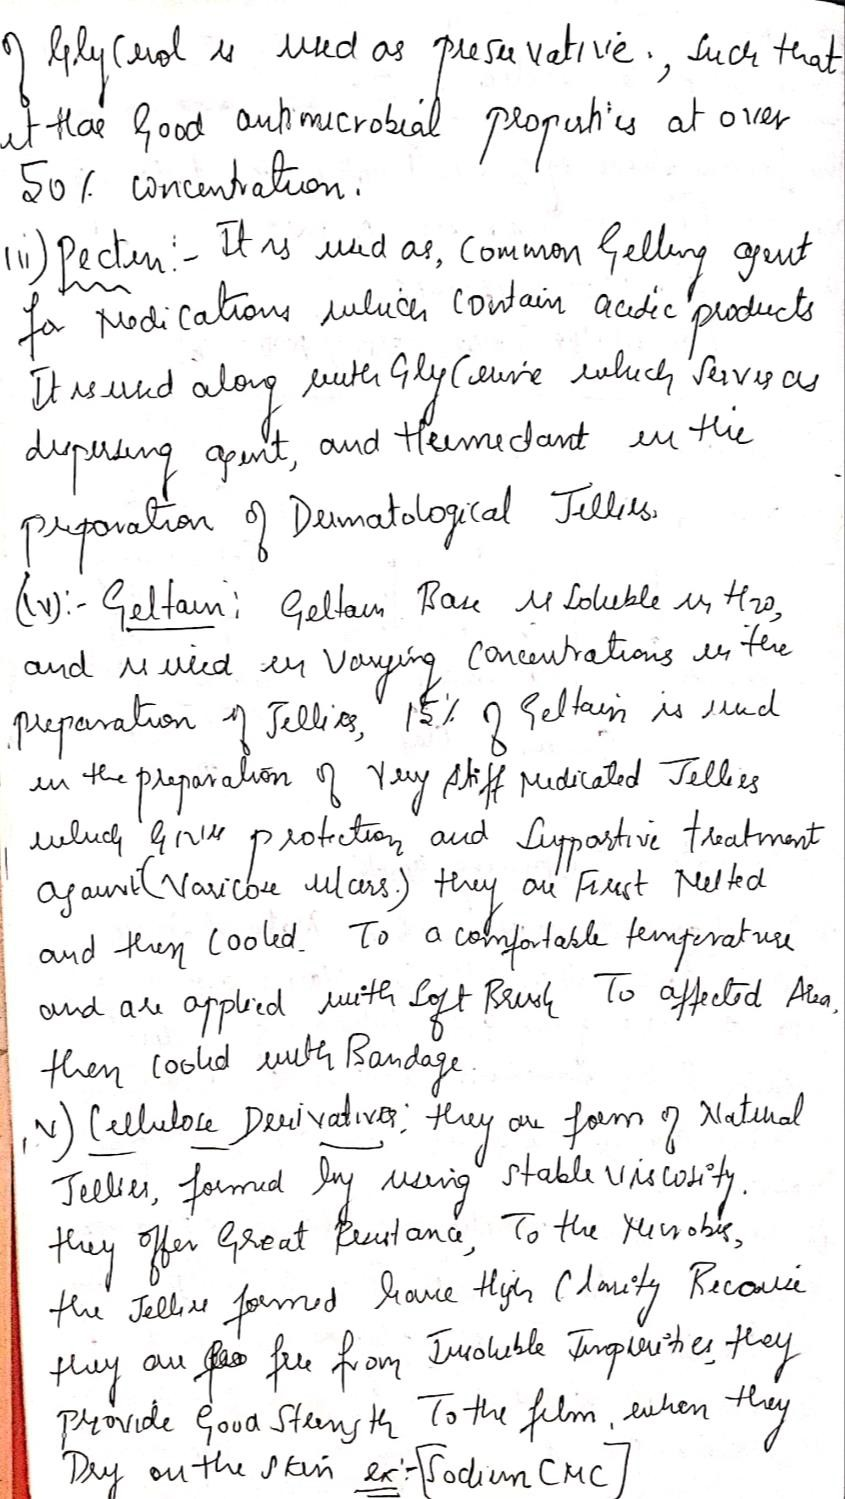 of Glycerol is used as preservative., such that
it Has Good antimicrobial properties at over
50% concentration.
iii) Pectin:- It is used as, common Gelling agent
for Medications which contain acidic products
It is used along with Glycerine which serves as
dispersing agent, and Humectant in the
preparation of Dermatological Jellies.
(iv):- Geltain; Geltain Base is soluble in H2O,
and is used in varying concentrations in the
preparation of Jellies, 15% of Geltain is used
in the preparation of very stiff medicated Jellies
which Gives protection and supportive treatment
against (Varicose ulcers.) they are First Melted
and then cooled. To a comfortable temperature
and are applied with soft Brush To affected Area,
then cooled with Bandage.
v) Cellulose Derivatives; they are form of Natural
Jellies, formed by using stable viscosity.
they offer Great Resistance, To the Microbes,
the Jellies formed have High Clarity Because
they are free from Insoluble Impurities, they
provide Good Strength To the film, when they
Dry on the skin ex:-[Sodium CMC]